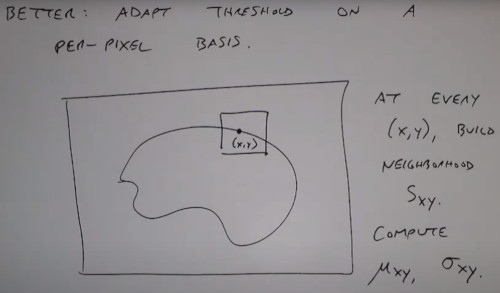 BETTER: ADAPT THRESHOLD ON A
PER-PIXEL BASIS.
(x,y)
AT EVERY
(x,y), BUILD
NEIGHBORHOOD
Sxy.
COMPUTE
μxy, σxy.